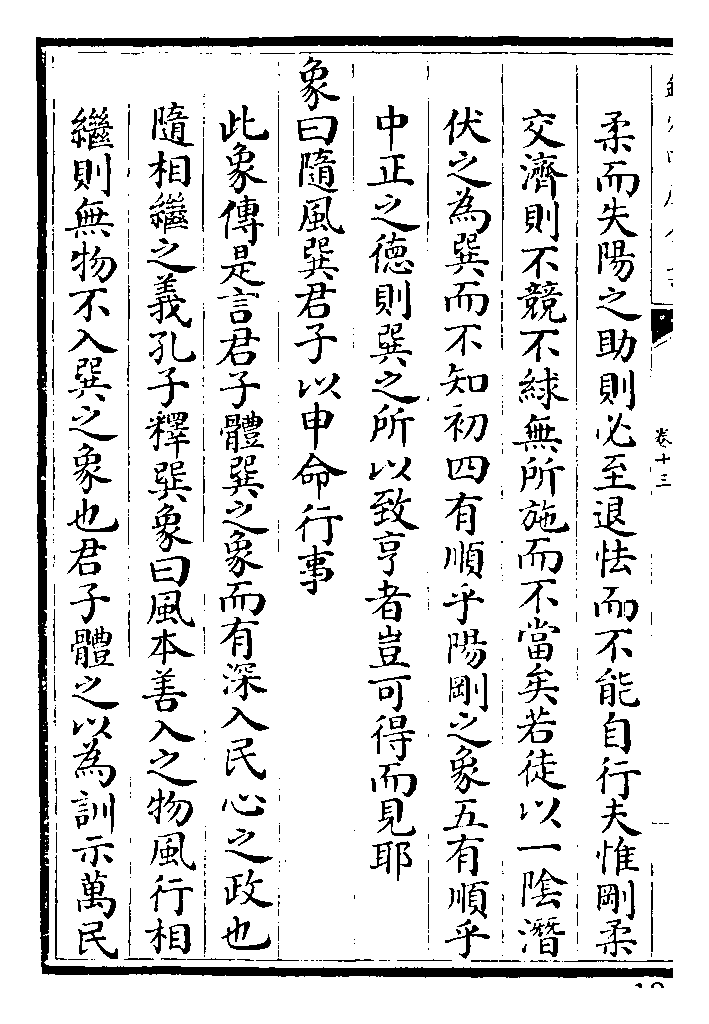 卷十三
柔而失陽之助則必至退怯而不能自行夫惟剛柔
交濟則不競不絿無所施而不當矣若徒以一陰潛
伏之為巽而不知初四有順乎陽剛之象五有順乎
中正之德則巽之所以致亨者豈可得而見耶
象曰隨風巽君子以申命行事
此象傳是言君子體巽之象而有深入民心之政也
隨相繼之義孔子釋巽象曰風本善入之物風行相
繼則無物不入巽之象也君子體之以為訓示萬民